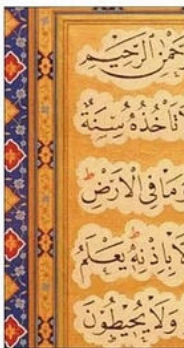 حْمٰنِ الرَّحِيمِ
تَأْخُذُهُ سِنَةٌ
وَمَا فِى الْاَرْضِ
لَّا بِاِذْنِهٖ يَعْلَمُ
وَلَا يُحِيطُونَ